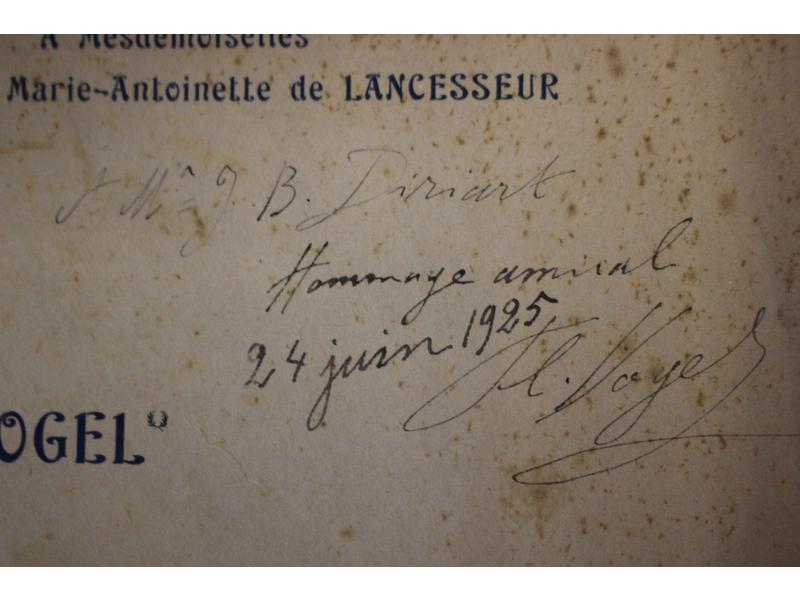 A Mesdemoiselles
Marie-Antoinette de LANCESSEUR
J. B. Diriart
Hommage amical
24 juin 1925
Vogel
OGEL